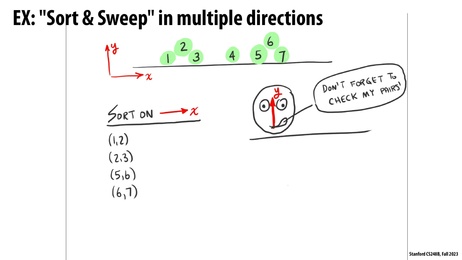 EX: "Sort & Sweep" in multiple directions
y
x
1 2 3 4 5 6 7
SORT ON → x
(1,2)
(2,3)
(5,6)
(6,7)
y
DON'T FORGET TO
CHECK MY PAIRS!
Stanford CS248B, Fall 2023